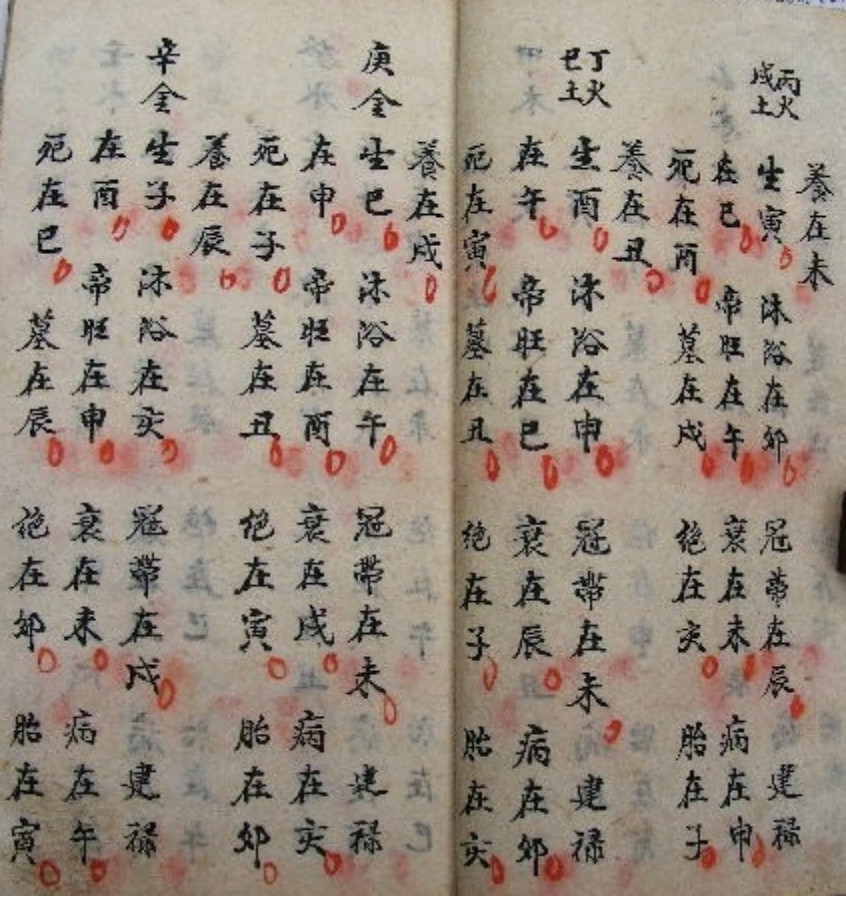 養在未
丙火
戊土
生寅 沐浴在卯 冠帶在辰 建祿
在巳 帝旺在午 衰在未 病在申
死在酉 墓在戌 絕在亥 胎在子
養在丑
丁火
己土
生酉 沐浴在申 冠帶在未 建祿
在午 帝旺在巳 衰在辰 病在卯
死在寅 墓在丑 絕在子 胎在亥
養在戌
庚金 生巳 沐浴在午 冠帶在未 建祿
在申 帝旺在酉 衰在戌 病在亥
死在子 墓在丑 絕在寅 胎在卯
養在辰
辛金 生子 沐浴在亥 冠帶在戌 建祿
在酉 帝旺在申 衰在未 病在午
死在巳 墓在辰 絕在卯 胎在寅